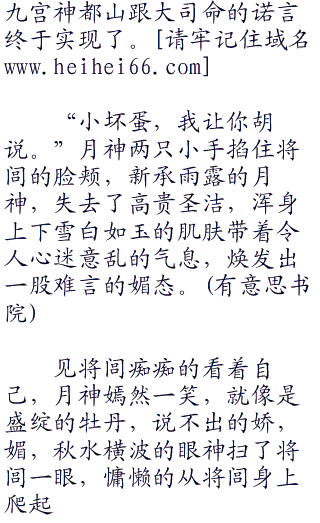 九宫神都山跟大司命的诺言
终于实现了。[请牢记住域名
www.heihei66.com]
“小坏蛋，我让你胡
说。”月神两只小手掐住将
闾的脸颊，新承雨露的月
神，失去了高贵圣洁，浑身
上下雪白如玉的肌肤带着令
人心迷意乱的气息，焕发出
一股难言的媚态。(有意思书
院)
见将闾痴痴的看着自
己，月神嫣然一笑，就像是
盛绽的牡丹，说不出的娇，
媚，秋水横波的眼神扫了将
闾一眼，慵懒的从将闾身上
爬起